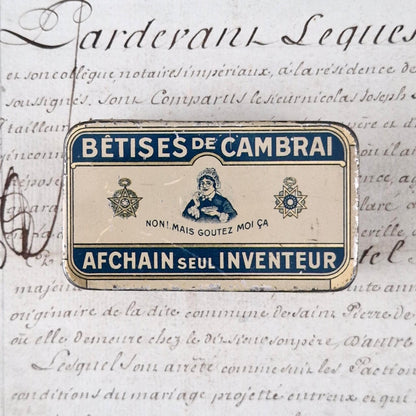 Pardevant Leques
et son collègue, notaires impériaux, à la résidence de
soussignés, sont Comparus le sieur nicolas Joseph
tailleur
BÊTISES DE CAMBRAI
NON! MAIS GOUTEZ MOI ÇA
AFCHAIN SEUL INVENTEUR
majeure
originaire de la dite commune de Saint Pierre de
où elle demeure chez le dit sieur son père, d'autre
Lesquels ont arrêté comme suit les
conditions du mariage projetté entr'eux et que